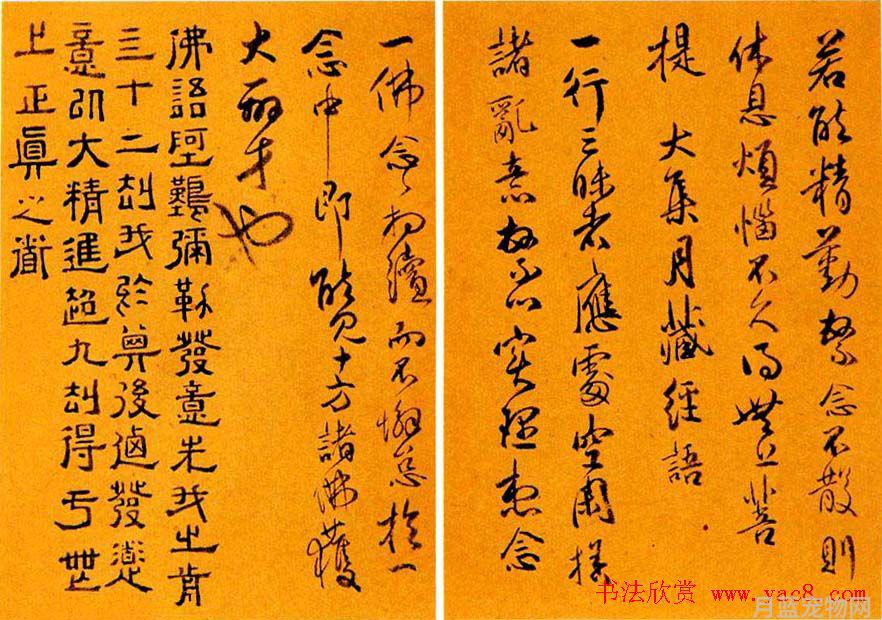 若能精勤繫念不散則
休息煩惱不久得無上菩
提 大集月藏經語
一行三昧者應處空閑捨
諸亂意繫心實理想念
一佛念念相續而不懈怠於一
念中即能見十方諸佛獲
大辯才也
佛語阿難彌勒發意先我之前
三十二劫我於其後迺發道
意以大精進超九劫得于無
上正真之道
书法欣赏 www.yac8.com
月蓝宠物网